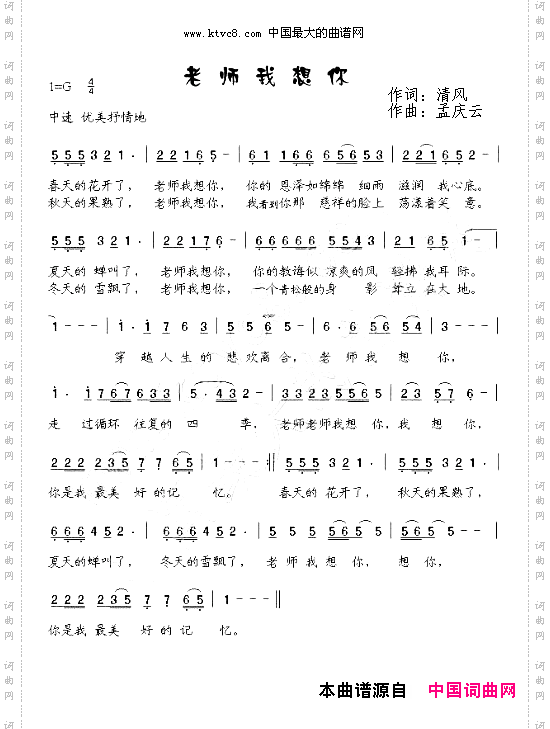 www.ktvc8.com 中国最大的曲谱网
老师我想你
1=G 4/4
作词：清风
中速 优美抒情地
作曲：孟庆云
5 5 5 3 2 1 · | 2 2 1 6 5 - | 6 1 1 6 6 6 5 3 5 | 2 2 1 2 - |
春天的花开了， 老师我想你， 你的 恩泽如绵绵 细雨 滋润 我心底。
秋天的果熟了， 老师我想你， 我看到你那 慈祥的脸上 荡漾着笑 意。
5 5 5 3 2 1 · | 2 2 1 7 6 - | 6 6 6 6 6 5 5 4 3 | 2 2 6 5 1 -
夏天的 蝉叫了， 老师我想你， 你的教诲似 凉爽的风 轻拂 我耳 际。
冬天的 雪飘了， 老师我想你， 一个青松般的身 影 耸立 在大 地。
1 - - - | 1 · 1 7 6 3 | 5 5 5 6 5 - | 6 · 6 5 6 5 4 | 3 - - - |
穿 越人生的 悲欢离合， 老 师我 想 你，
1 · 1 7 6 7 6 3 3 | 5 · 4 3 2 - | 3 3 2 3 5 5 6 5 | 2 3 5 7 6 · |
走 过循环 往复的 四 季， 老师老师我想 你，我 想 你，
2 2 2 2 3 5 7 7 6 5 | 1 - - - :| 5 5 5 3 2 1 · | 5 5 5 3 2 1 · |
你是我 最美 好 的记 忆。 春天的 花开了， 秋天的果熟了，
6 6 6 4 5 2 · | 6 6 6 4 5 2 · | 3 5 2 3 5 6 5 | 5 5 - - |
夏天的蝉叫了， 冬天的雪飘了， 老 师 我 想 你， 想 你，
2 2 2 2 3 5 7 7 6 5 | 1 - - - ‖
你是我 最美 好 的 记 忆。
本曲谱源自 中国词曲网
词曲网